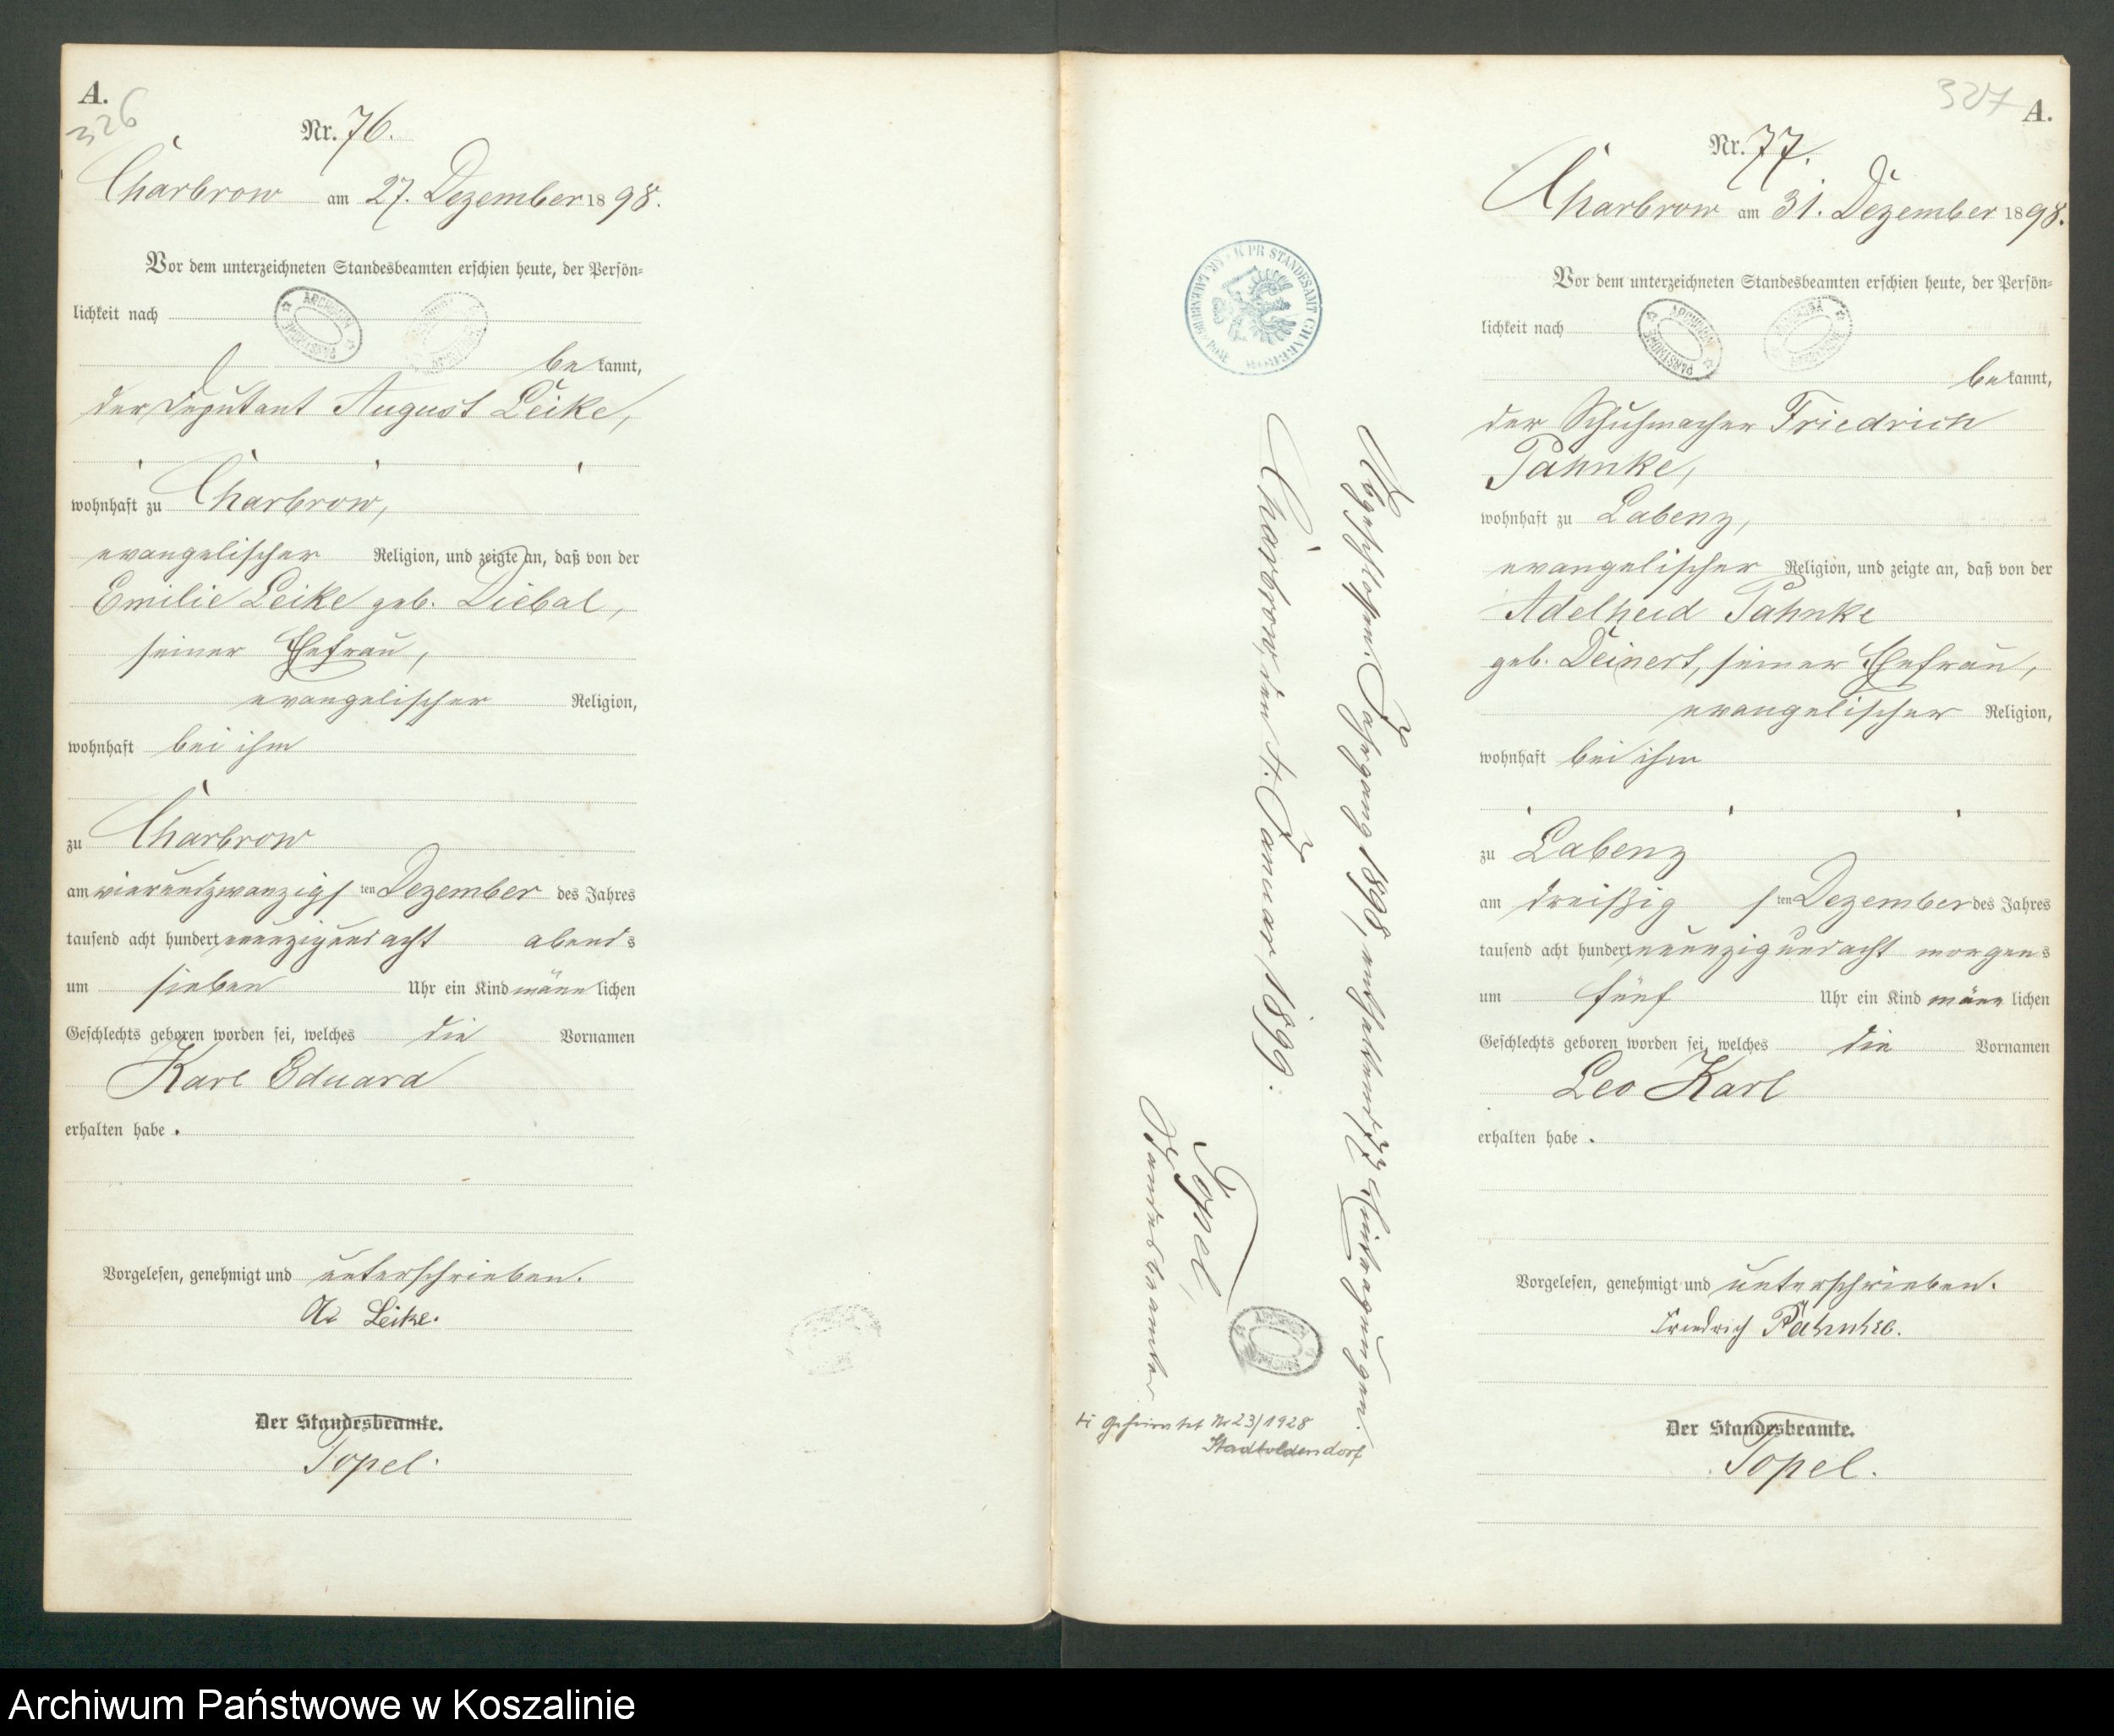 A.
326
Nr. 76.
Charbrow am 27. Dezember 1898.
Vor dem unterzeichneten Standesbeamten erschien heute, der Persön-
lichkeit nach
bekannt,
der Deputant August Leike,
wohnhaft zu Charbrow,
evangelischer Religion, und zeigte an, daß von der
Emilie Leike geb. Diebal,
seiner Ehefrau,
evangelischer Religion,
wohnhaft bei ihm
zu Charbrow
am vierundzwanzigsten Dezember des Jahres
tausend acht hundert neunzigundacht abends
um sieben Uhr ein Kind männlichen
Geschlechts geboren worden sei, welches die Vornamen
Karl Eduard
erhalten habe.
Vorgelesen, genehmigt und unterschrieben.
Leike.
Der Standesbeamte.
Topel.
327
A.
Nr. 77.
Charbrow am 31. Dezember 1898.
Vor dem unterzeichneten Standesbeamten erschien heute, der Persön-
lichkeit nach
bekannt,
der Schuhmacher Friedrich
Pahnke,
wohnhaft zu Labenz,
evangelischer Religion, und zeigte an, daß von der
Adelheid Pahnke
geb. Deinert, seiner Ehefrau,
evangelischer Religion,
wohnhaft bei ihm
zu Labenz
am dreißigsten Dezember des Jahres
tausend acht hundert neunzigundacht morgens
um fünf Uhr ein Kind männlichen
Geschlechts geboren worden sei, welches die Vornamen
Leo Karl
erhalten habe.
Vorgelesen, genehmigt und unterschrieben.
Friedrich Pahnke.
Der Standesbeamte.
Topel.
Abgeschlossen. Jahrgang 1898, enthaltend 77 Eintragungen.
Charbrow, den 4. Januar 1899.
Topel,
Standesbeamter.
geheiratet Nr 23/1928
Stadtoldendorf
K PR STANDESAMT CHARBROW
ARCHIWUM
Archiwum Państwowe w Koszalinie